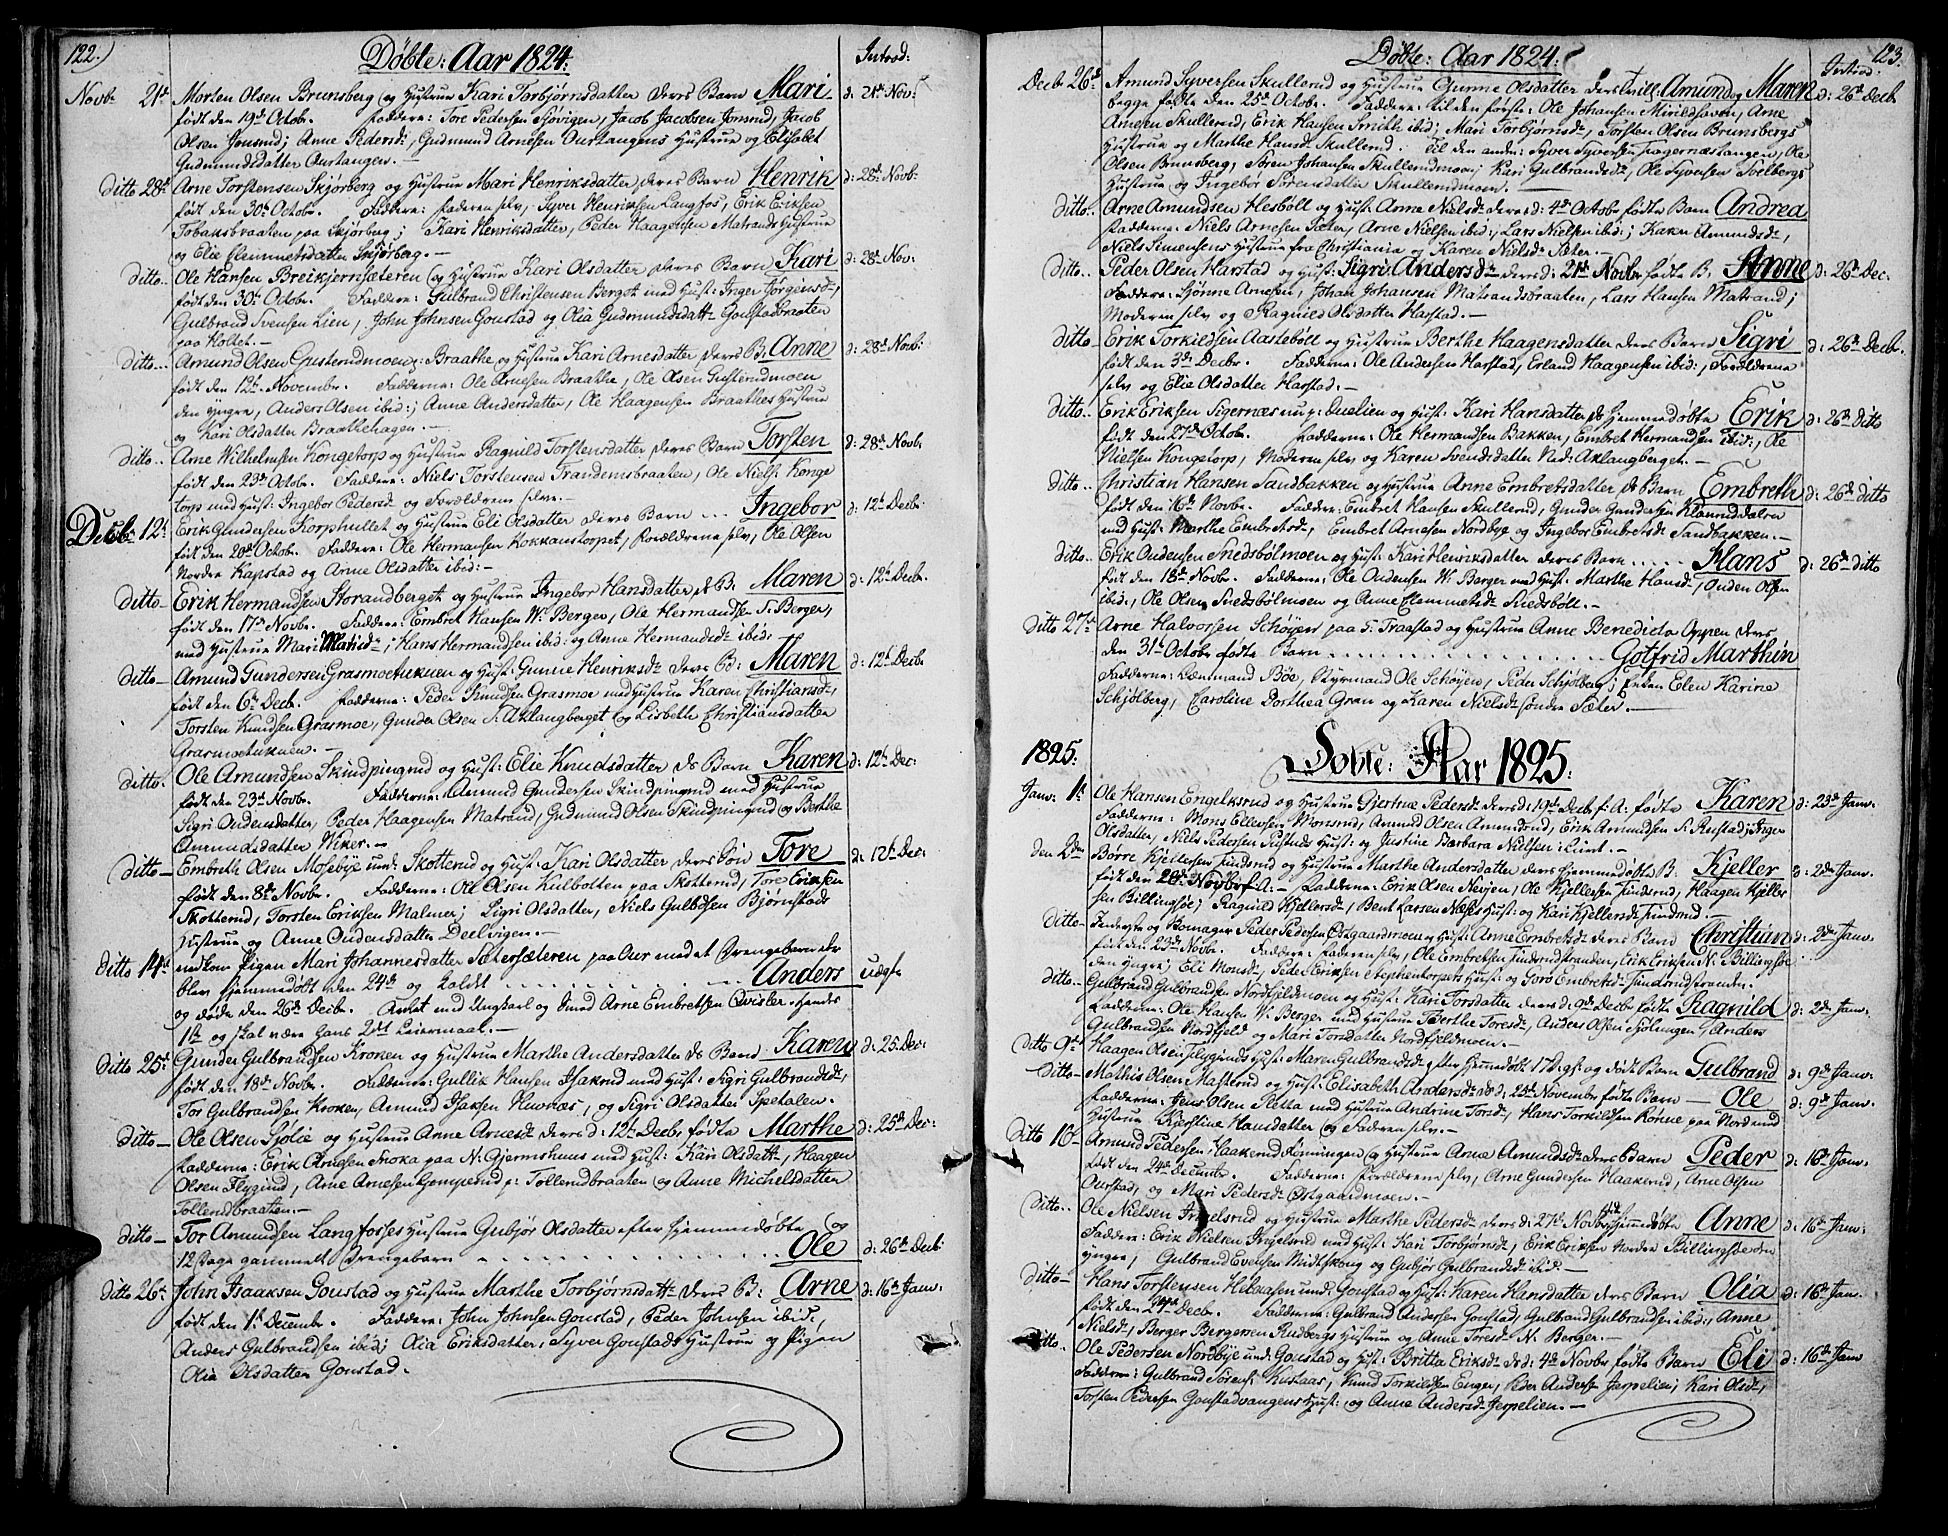 122.)
Døbte: Aar 1824.
Introd:
Novbr 21de Morten Olsen Brunsberg og Hustrue Kari Torbjørnsdatter deres Barn Mari d: 21de Nov:
født den 19d Octobr. Faddere: Tore Pedersen Sjøvigen, Jacob Jacobsen Jonsrud, Jacob
Olsen Jonsrud; Anne Pedersd:, Gudmund Arnesen Ourtangens Hustrue og Elisabet
Gudmundsdatter Ourtangen.—
Ditto 28de Arne Torstensen Skjørberg og Hustrue Mari Henriksdatter deres Barn Henrik d: 28de Novb:
født den 30te Octobr. Faddere: Faderen selv, Syver Henriksen Langfos, Erik Eriksen
Tobaksbraaten paa Skjørberg; Kari Henriksdatter, Peder Haagensen Matrands Hustrue
og Elie Clemmetsdatter Skjørberg.—
Ditto.. Ole Hansen Breikjernsæteren og Hustrue Kari Olsdatter deres Barn Kari d: 28de Nov:
født den 30te Octobr. Faddere: Gulbrand Christensen Berget med Hust: Inger Jørgensd:,
Gulbrand Svensen Lien, John Johnsen Goustad og Olia Gudmundsdatt: Goustadbraaten
paa Holtet.—
Ditto.. Amund Olsen Gusterudmoen p: Braathe og Hustrue Kari Arnesdatter deres B: Anne d: 28de Novb:
født den 12te November. Fadderne: Ole Arnesen Braathe, Ole Olsen Gusterudmoen
den yngre, Anders Olsen ibid:; Anne Andersdatter, Ole Haagensen Braathes Hustrue
og Kari Olsdatter Braathehagen.—
Ditto.. Arne Wilhelmsen Kongetorp og Hustrue Ragnild Torstensdatter deres Barn Torsten d: 28de Novb:
født den 23de Octobr. Faddere: Niels Torstensen Trandemsbraaten, Ole Niels: Konge
torp med Hust: Ingebor Pedersd: og Forældrene selv.—
Decbr. 12te Erik Gundersen Korphullet og Hustrue Eli Olsdatter deres Barn ... Ingebor d: 12te Decb:
født den 20de Octobr. Faddere: Ole Hermansen Kokkanstorpet, Forældrene selv, Ole Olsen
Nordre Kapstad og Anne Olsdatter ibid:—
Ditto— Erik Hermandsen Storandberget og Hustrue Ingebor Hansdatter ds B: Maren d: 12te Decb.
født den 17de Novbr. Faddere: Embret Hansen W: Berger, Ole Hermandsen S: Berger,
med Hustrue Mari Mariisd:; Hans Hermandsen ibid: og Anne Hermandsd: ibid:
Ditto— Amund Gundersen Grasmoetuknen og Hust: Gunne Henriksd: deres B: Maren d: 12te Decb.
født den 6te Decb. Fadderne: Peder Knudsen Grasmoe med Hustrue Karen Christiansd:,
Torsten Knudsen Grasmoe, Gunder Olsen S: Aklangberget og Lisbeth Christiansdatter
Grasmoetuknen.—
Ditto. Ole Amundsen Skindpingrud og Hust: Elie Knudsdatter ds Barn Karen d: 12te Dec:
født den 23de Novbr. Fadderne: Amund Gundersen Skindpingrud med Hustrue
Sigri Oudensdatter, Peder Haagensen Matrand, Gudmund Olsen Skindpingrud og Berthe
Amundsdatter Wiker.—
Ditto— Embreth Olsen Mosebye und: Skotterud og Hust: Kari Olsdatter deres Søn Tore d: 12te Dec:
født den 8de Novbr. Faddere: Ole Olsen Kulbotten paa Skotterud, Tore Eriksen
Skotterud, Torsten Eriksen Malmer; Sigri Olsdatter, Niels Gulbdsen Bjørnstads
Hustrue og Anne Oudensdatter Deelvigen.—
Ditto 14de nedkom Pigen Mari Johannesdatter Sætersæteren paa Our med et Drengebarn der
blev hjemmedøbt den 24de og kaldt . . . . . . . . . . Anders udgft
og døde den 26de Decbr. Avlet med Ungkarl og Smed Arne Embretsen Qvisler. Hendes
1ste og skal være hans 2det Leiermaal.—
Ditto 25de Gunder Gulbrandsen Kroken og Hustrue Marthe Andersdatter ds Barn Karen d: 25: Dec:
født den 18de Novbr. Faddere: Gullik Hansen Isakrud med Hust: Sigri Gulbrandsd:,
Tor Gulbrandsen Kroken, Amund Isaksen Huvnæs, og Sigri Olsdatter Spetalen.
Ditto— Ole Olsen Sjølie og Hustrue Anne Arnesd: deres d: 12te Decbr fødte Marthe d: 25de Dec:
Fadderne: Erik Arnesen Snoka paa N: Gjermshuus med Hust: Kari Olsdatt:, Haagen
Olsen Flygind, Arne Arnesen Gemperud p: Tollerudbraaten og Anne Michelsdatter
Tollerudbraaten.—
Ditto— Tor Amundsen Langfosses Hustrue Gubjør Olsdatter efter hjemmedøbte og
12 Dage gammel Drengebarn . . . . . . . . . . Ole d: 26de Decb:
Ditto 26de John Isaaksen Goustad og Hustrue Marthe Torbjørnsdatt: deres B: Arne d: 16de Janv:
født den 1ste December. Faddere: John Johnsen Goustad, Peder Johnsen ibid:,
Anders Gulbrandsen ibid; Olia Eriksdatter, Syver Goustads Hustrue og Pigen
Olia Olsdatter Goustad.—
123.
Døbte: Aar 1824.
Introd:
Decbr 26de Amund Syversen Skullerud og Hustrue Gunne Olsdatter deres tvill: Amund og Maren d: 26de Decb
begge fødte den 25de Octobr. Faddere: til den første: Ole Johansen Mirildhaven, Arne
Arnesen Skullerud, Erik Hansen Smith ibid; Mari Torbjørnsd:, Torsten Olsen Brunsbergs
Hustrue og Marthe Hansd: Skullerud. Til den anden: Syver Syversen Tragernæstangen, Ole
Olsen Brunsberg, Søren Johansen Skullerudmoen; Kari Gulbrandsd:, Ole Syversen Svelbergs
Hustrue og Ingebør Sørensdatter Skullerudmoen.—
Ditto.. Arne Amundsen Hesböll og Hust: Anne Nielsd: deres d: 4de Octobr fødte Barn Andrea
Fadderne: Niels Arnesen Sæter, Arne Nielsen ibid:, Lars Nielsen ibid:; Karen Amundsd:,
Niels Simensens Hustrue fra Christiania og Karen Nielsd: Sæter.—
Ditto.. Peder Olsen Harstad og Hust: Sigri Andersd: deres d: 21de Novbr fødte B: Anne d: 26de Dec:
Faddere: Sjønne Arnesen, Johan Johansen Matrandsbraaten, Lars Hansen Matrand;
Moderen selv og Ragnild Olsdatter Harstad.—
Ditto.. Erik Torkildsen Aasteböll og Hustrue Berthe Haagensdatter deres Barn Sigri d: 26de Decb.
født den 3de Decbr. Faddere: Ole Andersen Harstad, Erland Haagensen ibid:, Forældrene
selv og Elie Olsdatter Harstad.—
Ditto.. Erik Eriksen Sigernæs nu p: Duelien og Hust: Kari Hansdatter ds hjemmedøbte Erik d: 26de Ditto
født den 27de Octobr. Fadderne: Ole Hermandsen Bakken, Embret Hermandsen ibid:, Ole
Nielsen Kongetorp, Moderen selv og Karen Svendsdatter Ned: Aklangberget.—
Ditto.. Christian Hansen Sandbakken og Hustrue Anne Embretsdatter ds Barn Embreth d: 26de Ditto
født den 16de Novbr. Faddere: Embret Hansen Skullerud, Gunder Gundersen Klanruddalen
med Hust: Marthe Embretsd:, Embret Arnesen Nordbye og Ingebor Embretsd: Sandbakken.—
Ditto.. Erik Oudensen Snedsbölmoen og Hust: Kari Henriksdatter deres Barn ..... Hans d: 26de Ditto
født den 18de Novbr. Fadderne: Ole Oudensen W: Berger med Hust: Marthe Hansd:, Ouden Olsen
ibid:, Ole Olsen Snedsbölmoen og Anne Clemmetsd: Snedsböll.—
Ditto 27de Arne Halvorsen Schöyen paa S: Fraastad og Hustrue Anne Benedicta Oppen deres
den 31te Octobr fødte Barn . . . . . . . . . . Gotfrid Marthin
Fadderne: Lænsmand Bøe, Styrmand Ole Schøyen, Peder Schjølberg; Enken Elen Karine
Schjölberg, Caroline Dorthea Gran og Karen Nielsd: søndre Sæter.—
1825.
Døbte: Aar 1825.
Janv: 1ste Ole Hansen Engelksrud og Hustrue Gjertrue Pedersd: deres d: 19de Decb f: A: fødte Karen d: 23de Janv.
Fadderne: Mons Ellevsen Monsrud, Amund Olsen Amundrud, Erik Amundsen S: Rustad; Inger
Olsdatter, Niels Pedersen Pusthus Hust: og Justine Barbara Nielsen: Liint.—
den 2den Børre Kjellersen Tindsrud og Hustrue Marthe Andersdatter deres hjemmedøbte B. Kjeller d: 2de Janv.
født den 20de Novbr f: A:— Faddere: Erik Olsen Nesjen, Ole Kjellersen Tindsrud, Haagen Kjeller
sen Billingsøe; Ragnild Kjellersd:, Bent Larsen Næses Hust: og Kari Kjellersd: Tindsrud.—
Ditto— Inderste og Bomager Peder Pedersen Østgaardsmoen og Hust: Anne Embretsd: deres Barn Christian d: 2de Janv.
født den 23de Novbr. Faddere: Faderen selv, Ole Embretsen Tindsrudstranden, Erik Eriksen N: Billingsøe
den yngre; Eli Monsd:, Peder Eriksen Stephentorpets Hust: og Goro Embretsd: Tindsrudstranden.
Ditto.. Gulbrand Gulbrandsen Nordfjeldmoen og Hust: Kari Torsdatter deres d: 9de Decbr fødte Ragnild d: 2de Janv.
Fadderne: Ole Hansen W: Berger med Hustrue Berthe Toresd:, Anders Olsen Sjölungen, Anders
Gulbrandsen Nordfjeld og Mari Torsdatter Nordfjeldmoen.—
Ditto 9de Haagen Olsen Flyginds Hust: Maren Gulbrandsd: efter hjemmdøbt 17 D: gl: og dødt Barn Gulbrand d: 9de Janv.
Ditto— Mathis Olsen Masterud og Hust: Elisabeth Andersd: ds d: 25de November fødte Barn — Ole d: 9de Janv.
Fadderne: Jens Olsen Pletta med Hustrue Andrine Torsd:, Hans Torkildsen Rønne paa Nordrud
Hustrue Kjerstine Hansdatter og Faderen selv.—
Ditto 16— Amund Pedersen Haakerud Lønningen og Hustrue Anne Amundsd: deres Barn Peder d: 16de Janv.
født den 24de December. Fadderne: Forældrene selv, Arne Gundersen Haakerud, Arne Olsen
Ourstad, og Mari Pedersd: Østgaardmoen.—
Ditto.. Ole Nielsen Ingelsrud og Hustrue Marthe Pedersd: deres d: 27de Novbr hjemmedøbte Anne d: 16de Janv:
Faddere: Erik Nielsen Ingelsrud med Hust: Kari Torbjørnsd:, Erik Eriksen Nordre Billingsöe den
yngre, Gulbrand Evensen Midtskoug og Gubjør Gulbrandsd: ibid.—
Ditto— Hans Torstensen Hekaasen und: Goustad og Hust: Karen Hansdatter deres Barn Olia d: 16de Jan:
født den 24de Decbr. Fadderne: Gulbrand Andersen Goustad, Gulbrand Gulbrandsen ibid:, Anne
Nielsd:, Berger Bergersen Rudbergs Hustrue og Anne Toresd: N: Berger.—
Ditto.. Ole Pedersen Nordbye und: Goustad og Hust: Britta Eriksd: ds d: 4de Novbr fødte Barn Eli d: 16de Jan
Fadderne: Gulbrand Sørens: Kusaas, Knud Torkildsen Enger, Peder Andersen Jerpelien; Kari Olsd:,
Torsten Pedersen Goustadvangens Hust: og Anne Andersd: Jerpelien.—